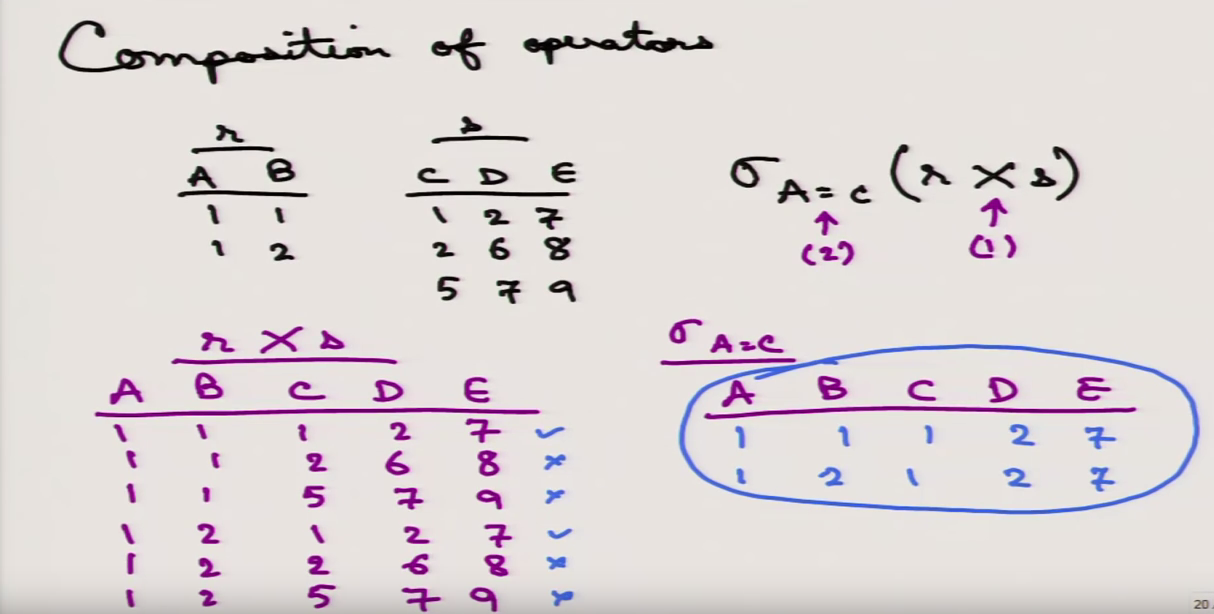 Composition of operators
r s
A B C D E
1 1 1 2 7
1 2 2 6 8
5 7 9
σ A=C (r X s)
↑ ↑
(2) (1)
r X s
A B C D E
1 1 1 2 7 ✓
1 1 2 6 8 ×
1 1 5 7 9 ×
1 2 1 2 7 ✓
1 2 2 6 8 ×
1 2 5 7 9 ×
σ A=C
A B C D E
1 1 1 2 7
1 2 1 2 7
20